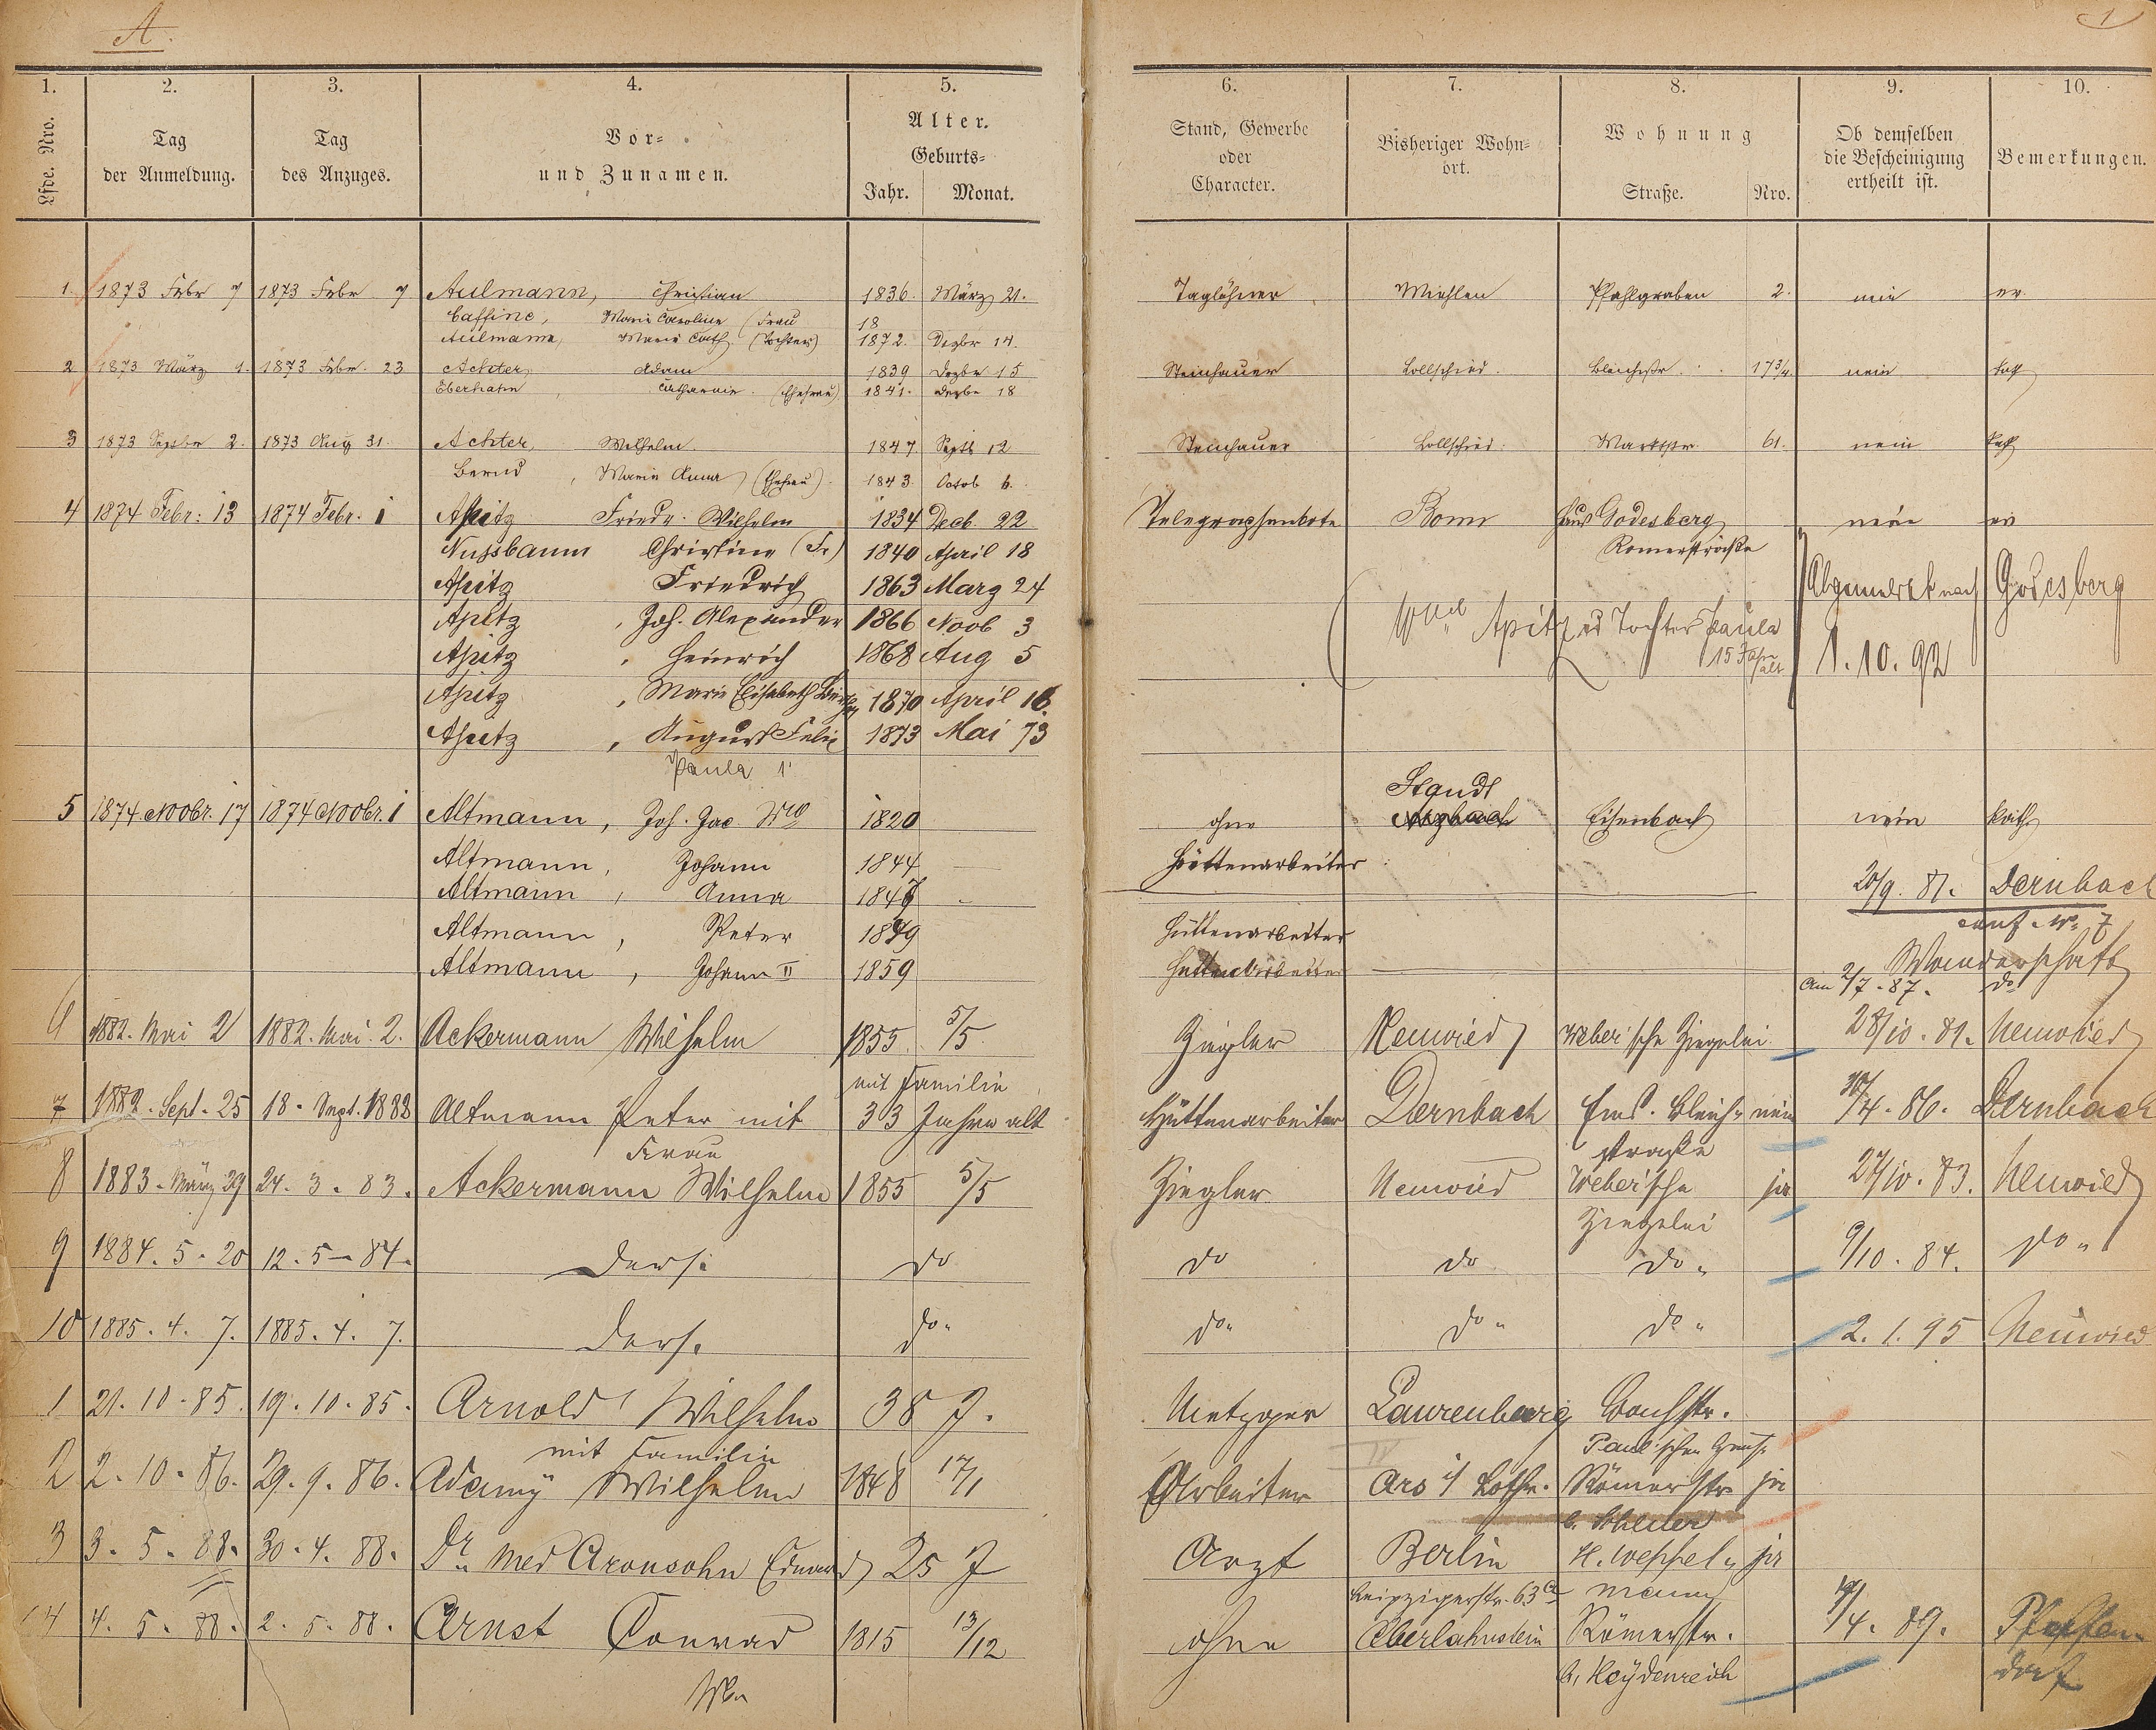 A.
1
1. 2. 3. 4. 5. 6. 7. 8. 9. 10.
Lfde. Nro.
Tag der Anmeldung.
Tag des Anzuges.
Vor- und Zunamen.
Alter. Geburts-
Jahr. Monat.
Stand, Gewerbe oder Character.
Bisheriger Wohn-ort.
Wohnung
Straße. Nro.
Ob demselben die Bescheinigung ertheilt ist.
Bemerkungen.
1. 1873 Febr 7 1873 Febr 7 Aulmann, Christian 1836. März 21. Taglöhner Miehlen Pfahlgraben 2. nein ev.
Caffine, Marie Caroline (Frau 18
Aulmann, Marie Cath (Tochter) 1872. Dezbr 14.
2 1873 März 1. 1873 Febr. 23 Achter, Adam 1839 Dezbr 15 Steinhauer Lollschied. Bleichstr. 17 3/4. nein kath
Eberhahn, Catharine. (Ehefrau) 1841. Dezbr 18
3 1873 Septbr 2. 1873 Aug 31. Achter, Wilhelm. 1847 Septb 12 Steinhauer Lollschied. Marktstr. 61. nein kath
Bernd, Marie Anna (Ehefrau). 1843. Octob 6.
4 1874 Febr: 13 1874 Febr. 1 Apitz Friedr. Wilhelm 1834 Decb. 22 Telegraphenbote Bonn Haus Godesberg nein ev
Nussbaum Christine (Fr) 1840 April 18 Römerstraße
Apitz Friedrich 1863 März 24 Abgemeldet nach Godesberg
Apitz, Joh. Alexander 1866 Novb 3 Apitz und Tochter Paula
Apitz, Heinrich 1868 Aug 5 15 Jahr alt 1.10.92
Apitz, Marie Elisabeth 1870 April 16.
Apitz, August Felix 1873 Mai 73
Paula 1
5 1874 Novbr. 17 1874 Novbr. 1 Altmann, Joh. Jac. Ww 1820 ohne Staudt Eisenbach nein kath
Altmann, Johann 1844 Hüttenarbeiter
Altmann, Anna 1847 20/9. 81. Dernbach
Altmann, Peter 1849 Hüttenarbeiter conf. No. 7
Altmann, Johann II 1859 Hüttenarbeiter Wanderschaft
am 2/7.87. do
6 1882. Mai 2 1882. Mai. 2. Ackermann Wilhelm 1855. 5/5 Ziegler Neuwied Weber'sche Ziegelei 28/10. 81. Neuwied
mit Familie
7 1882. Sept. 25 18. Sept. 1882 Altmann Peter mit 33 Jahre alt Hüttenarbeiter Dernbach Ems. Bleich- nein /4. 86. Dernbach
Frau straße
8 1883. März 29 24. 3. 83. Ackermann Wilhelm 1855 5/5 Ziegler Neuwied Weber'sche ja 27/10. 83. Neuwied
Ziegelei
9 1884. 5. 20 12. 5. 84. Ders. do do do do. 9/10. 84. do.
10 1885. 4. 7. 1885. 4. 7. Ders. do. do. do. do. 2. 1. 95 Neuwied
1 21. 10. 85. 19. 10. 85. Arnold Wilhelm 38 J. Metzger Laurenburg Bachstr.
mit Familie Paul'schen Hause
2 2. 10. 86. 29. 9. 86. Adamy Wilhelm 1848 17/1 Arbeiter Ars i/ Lothr. Römerstr ja
3 3. 5. 88. 30. 4. 88. Dr. Med Aronsohn Eduard 25 J Arzt Berlin H. Weppel- ja
Leipzigerstr. 63a mann
14 4. 5. 88. 2. 5. 88. Arnst Conrad 1815 13/12 ohne Oberlahnstein Römerstr. /4. 89. Pfaffen-
b. Heydenreich dorf
Ww.